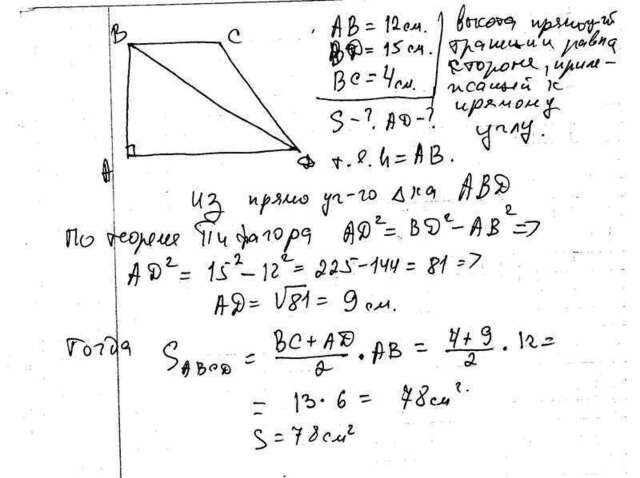 B C
A D
AB = 12 см.
BD = 15 см.
BC = 4 см.
S - ? AD - ?
высота прямоуг-й
трапеции равна
стороне, приле-
жащей к
прямому
углу.
т.е. h = AB.
Из прямоуг-го Δ-ка ABD
По теореме Пифагора AD² = BD² - AB² =>
AD² = 15² - 12² = 225 - 144 = 81 =>
AD = √81 = 9 см.
Тогда S_ABCD = (BC + AD)/2 · AB = (4 + 9)/2 · 12 =
= 13 · 6 = 78 см².
S = 78 см²